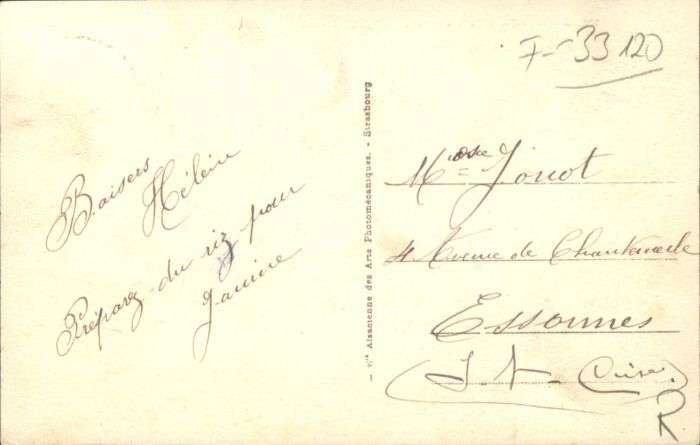 Baisers
Hélène
Préparez du riz pour
Janine
Alsacienne des Arts Photomécaniques. - Strasbourg
33120
Jouot
4 Avenue de Chantemerle
Essonnes
(S. et Oise)
R